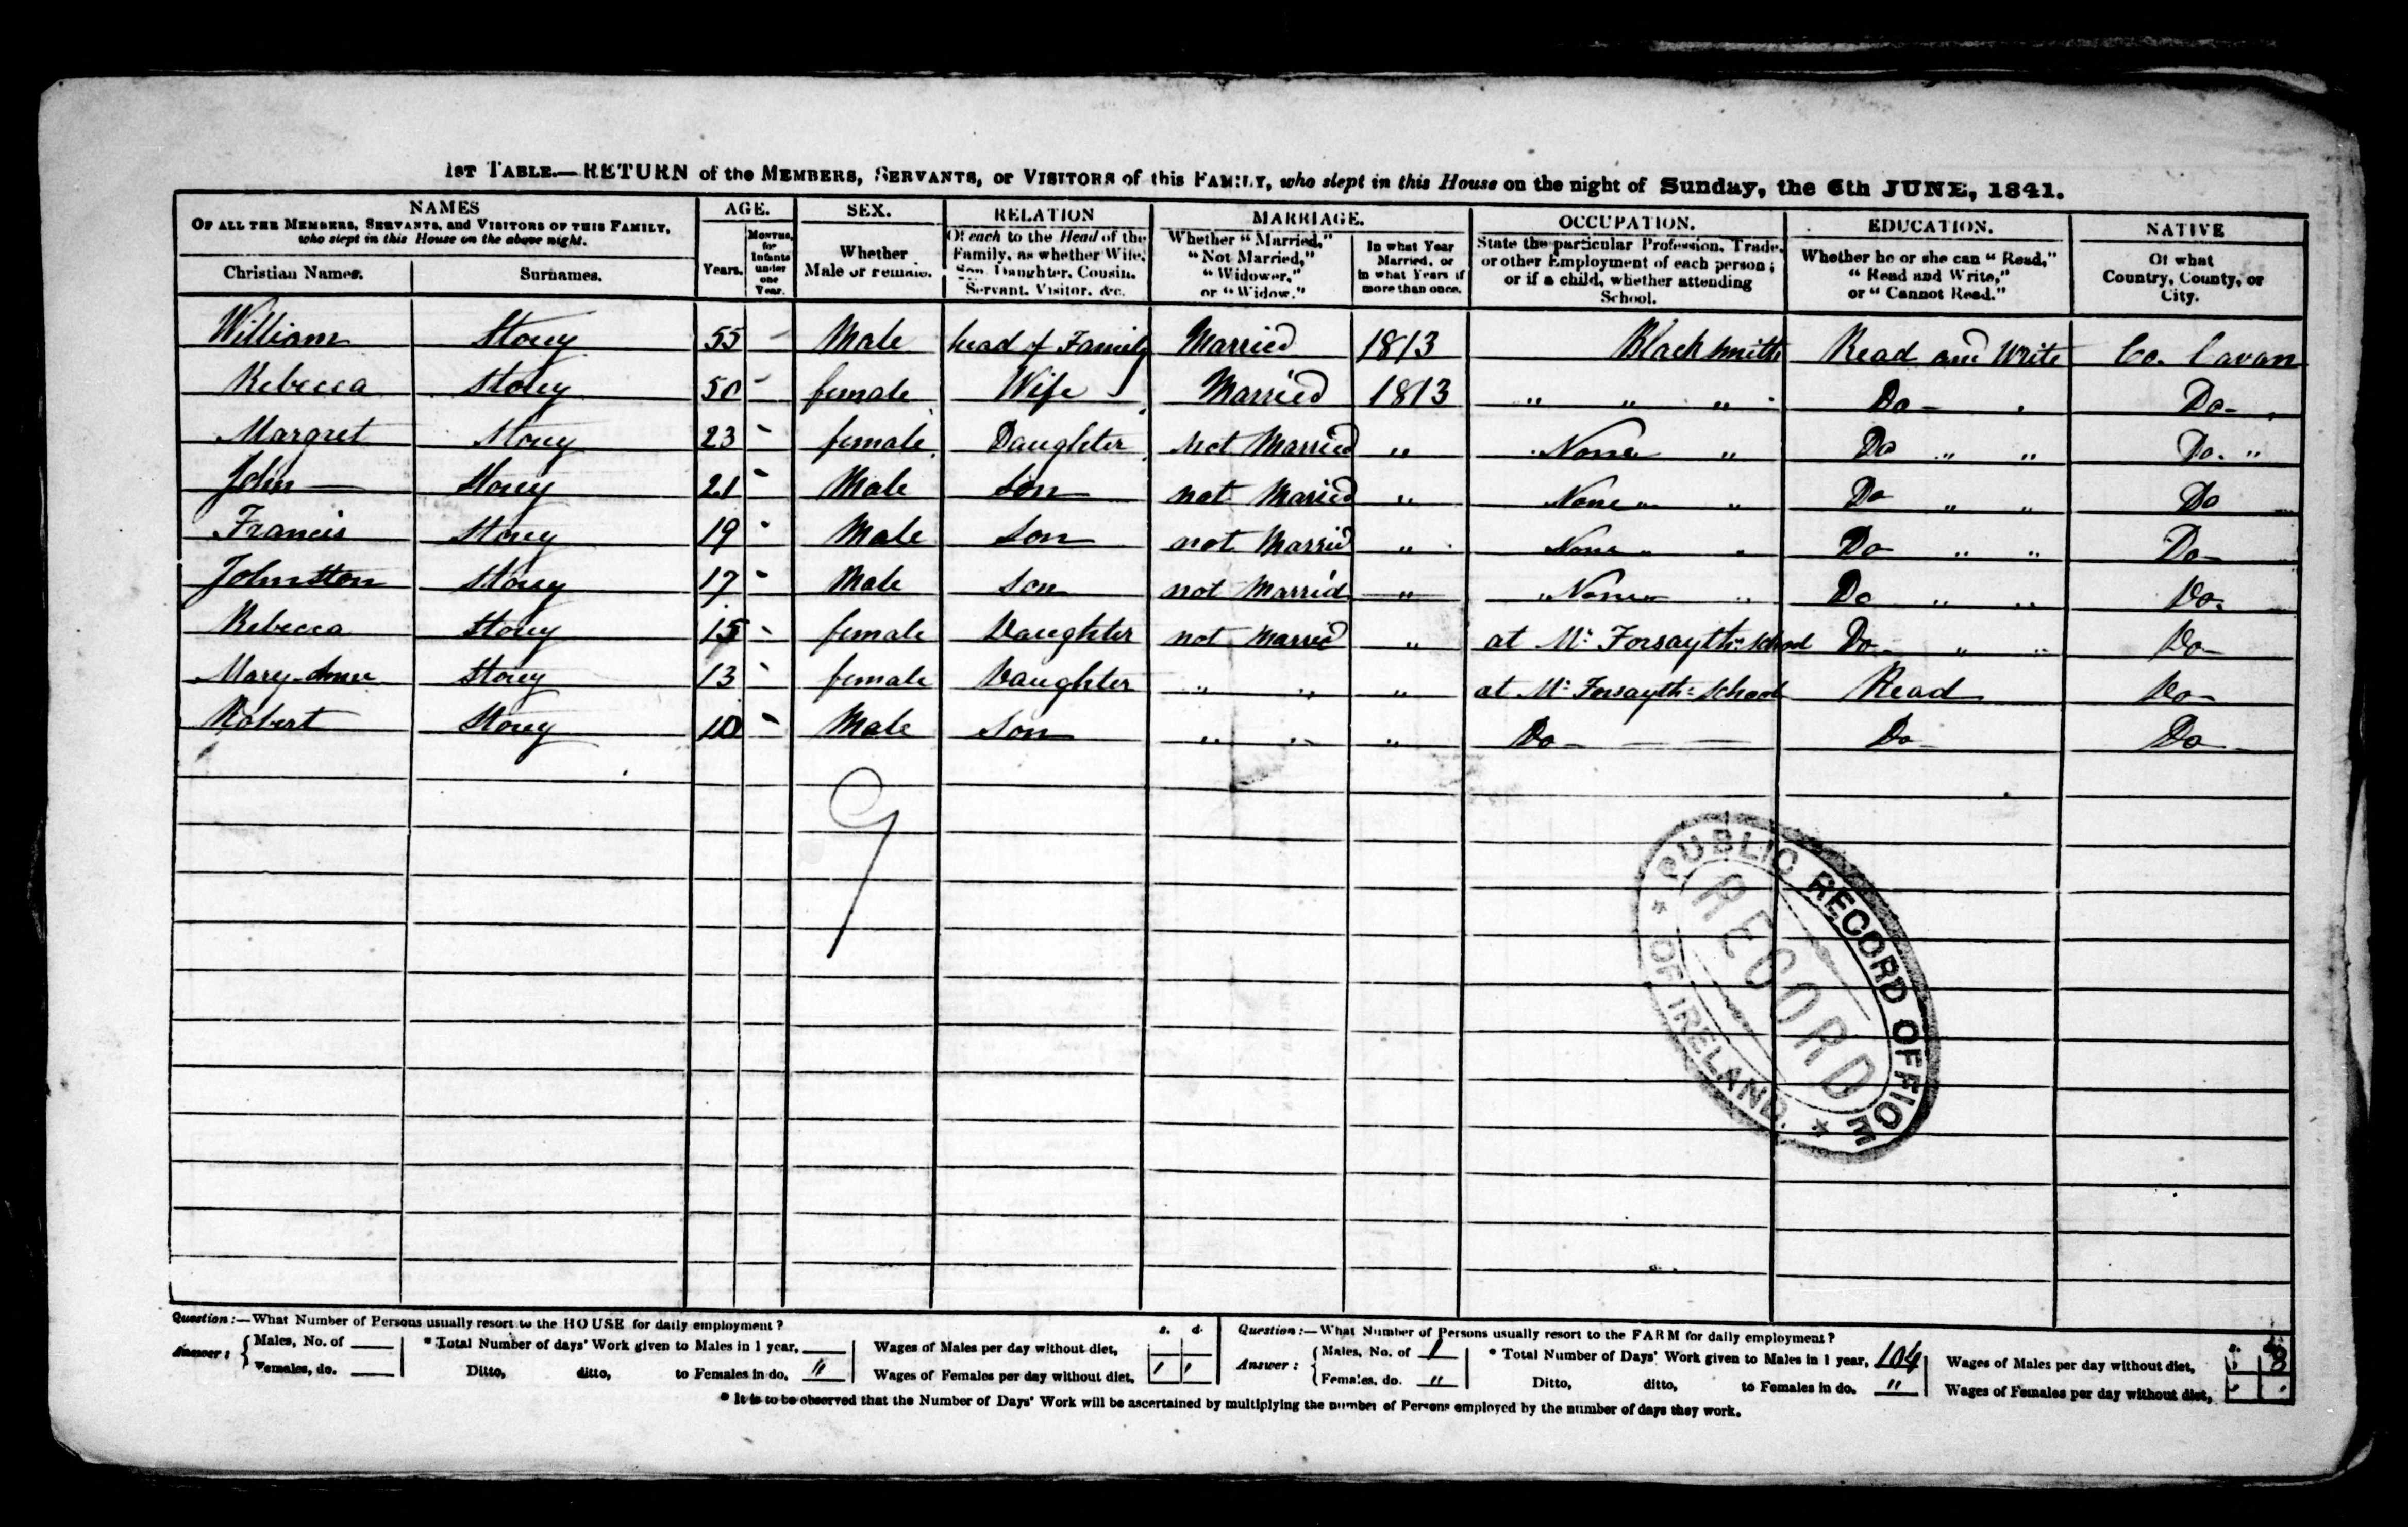 1ST TABLE.—RETURN of the MEMBERS, SERVANTS, or VISITORS of this FAMILY, who slept in this House on the night of Sunday, the 6th JUNE, 1841.
NAMES
OF ALL THE MEMBERS, SERVANTS, and VISITORS OF THIS FAMILY,
who slept in this House on the above night.
Christian Names.
Surnames.
AGE.
Years.
Months, for Infants under one Year.
SEX.
Whether
Male or Female.
RELATION
Of each to the Head of the
Family, as whether Wife,
Son, Daughter, Cousin,
Servant, Visitor, &c.
MARRIAGE.
Whether "Married,"
"Not Married,"
"Widower,"
or "Widow."
In what Year
Married, or
in what Years if
more than once.
OCCUPATION.
State the particular Profession, Trade,
or other Employment of each person;
or if a child, whether attending
School.
EDUCATION.
Whether he or she can "Read,"
"Read and Write,"
or "Cannot Read."
NATIVE
Of what
Country, County, or
City.
William Storey 55 - Male head of Family Married 1813 Blacksmith Read and Write Co. Cavan
Rebecca Storey 50 - female Wife Married 1813 " " " Do Do
Margret Storey 23 - female Daughter not Married " None " Do " " Do. "
John Storey 21 - Male Son not Married " None " " Do " " Do
Francis Storey 19 - Male Son not Married " None " " Do " " Do
Johnston Storey 17 - Male Son not Married " " None " " Do " " Do.
Rebecca Storey 15 - female Daughter not Married " at Mr Forsayths School Do " " Do
Mary Anne Storey 13 - female Daughter " " " at Mr Forsayths School Read Do
Robert Storey 10 - Male Son " " " Do Do Do
9
PUBLIC RECORD OFFICE
OF IRELAND.
RECORD
Question:—What Number of Persons usually resort to the HOUSE for daily employment?
Answer: Males, No. of
Females, do.
* Total Number of days' Work given to Males in 1 year,
Ditto, ditto, to Females in do. "
s. d.
Wages of Males per day without diet,
Wages of Females per day without diet,
Question:—What Number of Persons usually resort to the FARM for daily employment?
Answer: Males, No. of 1
Females, do. "
* Total Number of Days' Work given to Males in 1 year, 104
Ditto, ditto, to Females in do. "
s. d.
Wages of Males per day without diet, 8
Wages of Females per day without diet,
* It is to be observed that the Number of Days' Work will be ascertained by multiplying the number of Persons employed by the number of days they work.